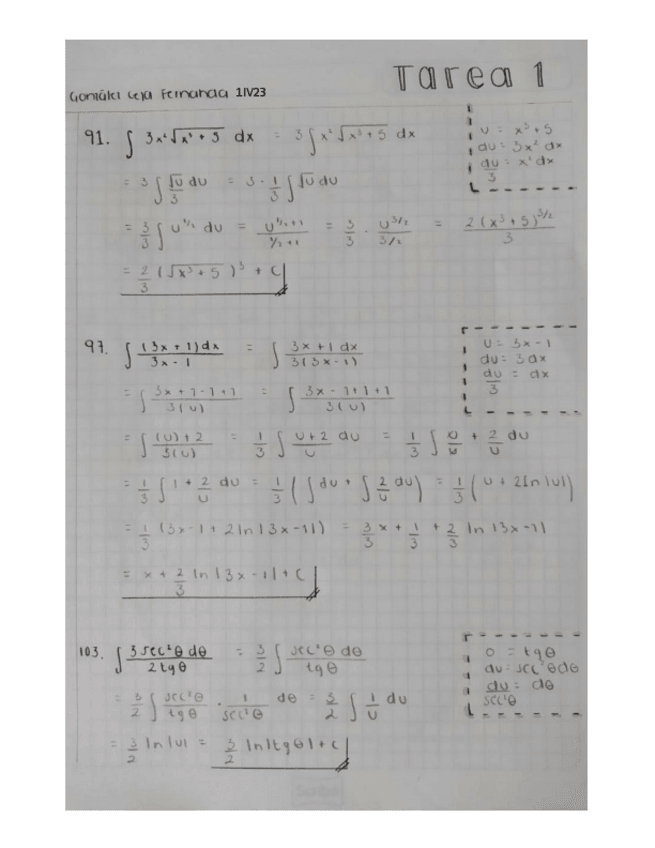 Tarea 1
González Leja Fernanda 1IV23
91. ∫ 3x²√(x³ + 5) dx = 3 ∫ x²√(x³ + 5) dx
u = x³ + 5
du = 3x² dx
du/3 = x² dx
= 3 ∫ √u/3 du = 3 · 1/3 ∫ √u du
= 3/3 ∫ u^(1/2) du = u^(1/2 + 1)/(1/2 + 1) = 3/3 · u^(3/2)/(3/2) = 2(x³ + 5)^(3/2)/3
= 2/3 (√(x³ + 5))³ + C
97. ∫ (3x + 1)dx/(3x - 1) = ∫ 3x + 1 dx/3(3x - 1)
u = 3x - 1
du = 3dx
du/3 = dx
= ∫ (3x + 1 - 1 + 1)/3(u) = ∫ (3x - 1 + 1 + 1)/3(u)
= ∫ ((u) + 2)/3(u) = 1/3 ∫ (u + 2)/u du = 1/3 ∫ u/u + 2/u du
= 1/3 ∫ 1 + 2/u du = 1/3 (∫ du + ∫ 2/u du) = 1/3 (u + 2 ln |u|)
= 1/3 (3x - 1 + 2 ln |3x - 1|) = 3/3 x + 1/3 + 2/3 ln |3x - 1|
= x + 2/3 ln |3x - 1| + C
103. ∫ 3 sec²θ dθ/2 tgθ = 3/2 ∫ sec²θ dθ/tgθ
u = tgθ
du = sec²θdθ
du/sec²θ = dθ
= 3/2 ∫ sec²θ/tgθ · 1/sec²θ dθ = 3/2 ∫ 1/u du
= 3/2 ln |u| = 3/2 ln |tgθ| + C